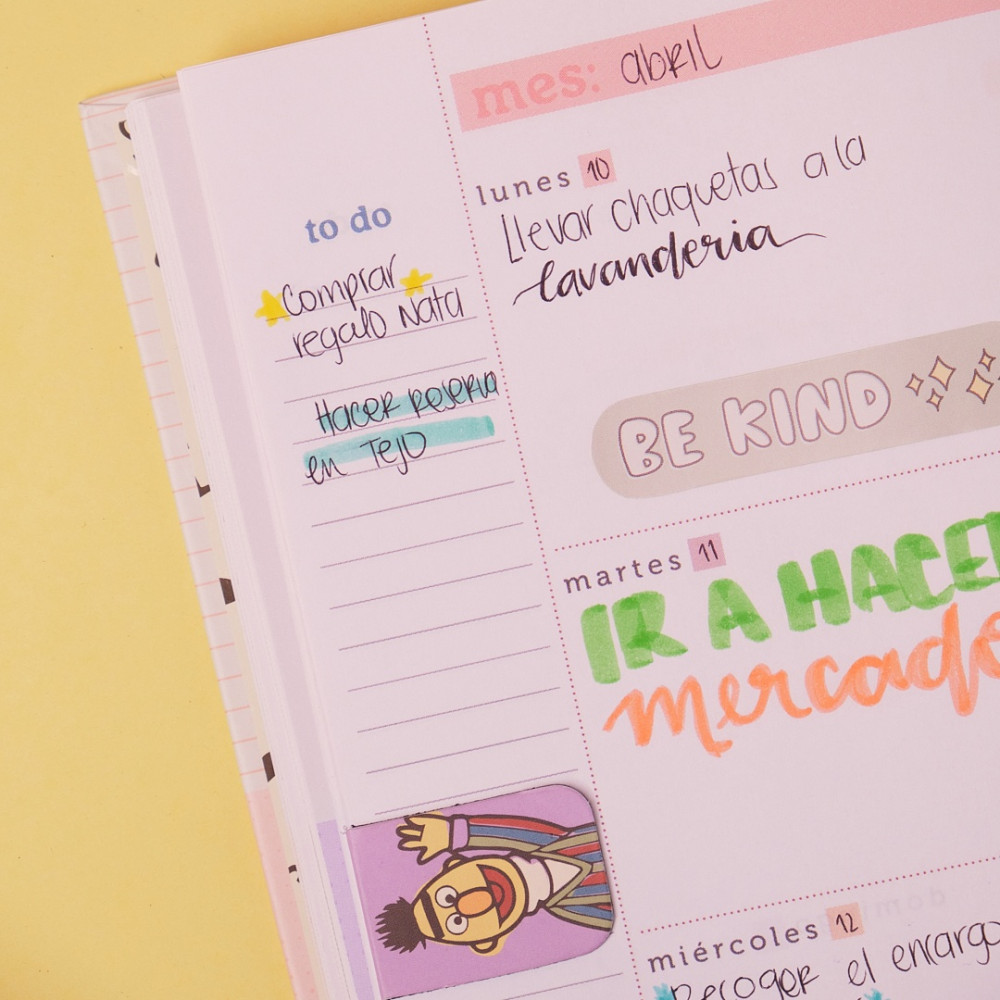 mes: abril
to do
Comprar
regalo Nata
Hacer reserva
en Tejo
lunes 10
Llevar chaquetas a la
lavanderia
BE KIND
martes 11
IR A HACER
mercado
miércoles 12
Recoger el encargo